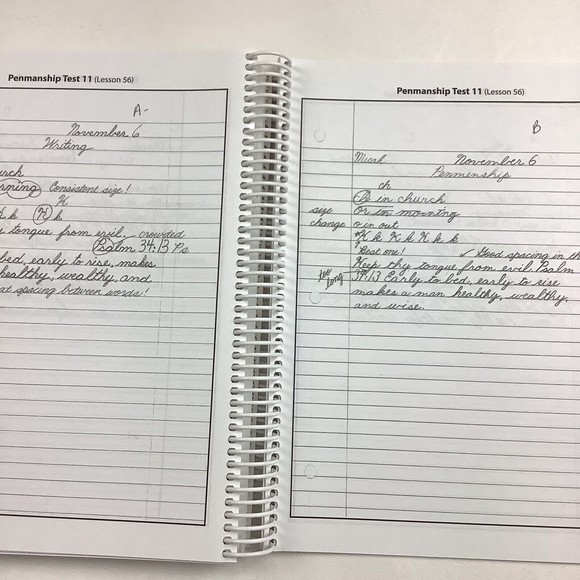 Penmanship Test 11 (Lesson 56)
A-
November 6
Writing
urch
rning Consistent size!
K
k K k
tongue from evil. crowded
Psalm 34:13 Ps
bed, early to rise, makes
healthy, wealthy, and
at spacing between words!
Penmanship Test 11 (Lesson 56)
B
Micah November 6
Penmenship
ch
in church
size or in morning
change o in out
K k K k K k k
Best one! ✓ Good spacing in th
Keep thy tongue from evil Psalm
too long 34:13 Early to bed, early to rise
makes a man healthy, wealthy,
and wise.